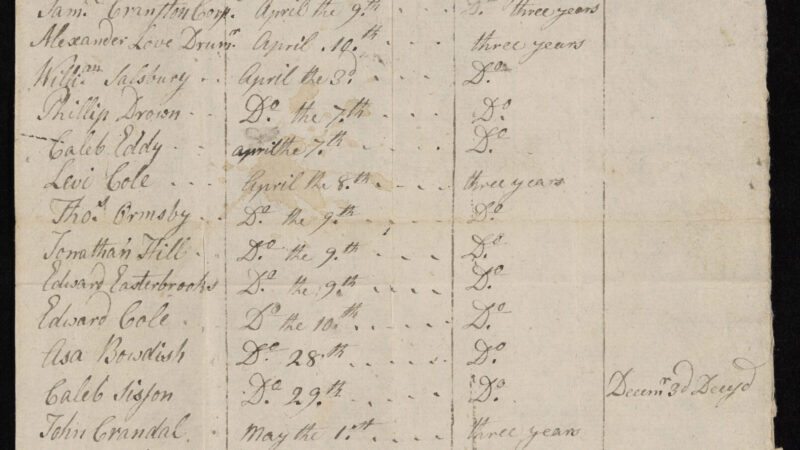 Sam.l Cranston Corp.l April the 9.th D.o three years
Alexander Love Drum.r April . 10.th . . . three years
Willi.am Salsbury . . April the 3.d . . . D.o
Phillip Drown . . D.o the 7.th . . . . D.o
Caleb Eddy . . april the 7.th . . . . D.o
Levi Cole . . . April the 8.th . . . . three years
Tho.s Ormsby . . D.o the 9.th . . . . D.o
Jonathan Hill . . D.o the 9.th . . . . D.o
Edward Easterbrooks D.o the 9.th . . . . D.o
Edward Cole . D.o the 10.th . . . . D.o
Asa Bowdish D.o 28.th . . . . D.o
Caleb Sisson D.o 29.th . . . . D.o Decem.r 3d Decy.d
John Crandal . May the 1.th . . . . three years